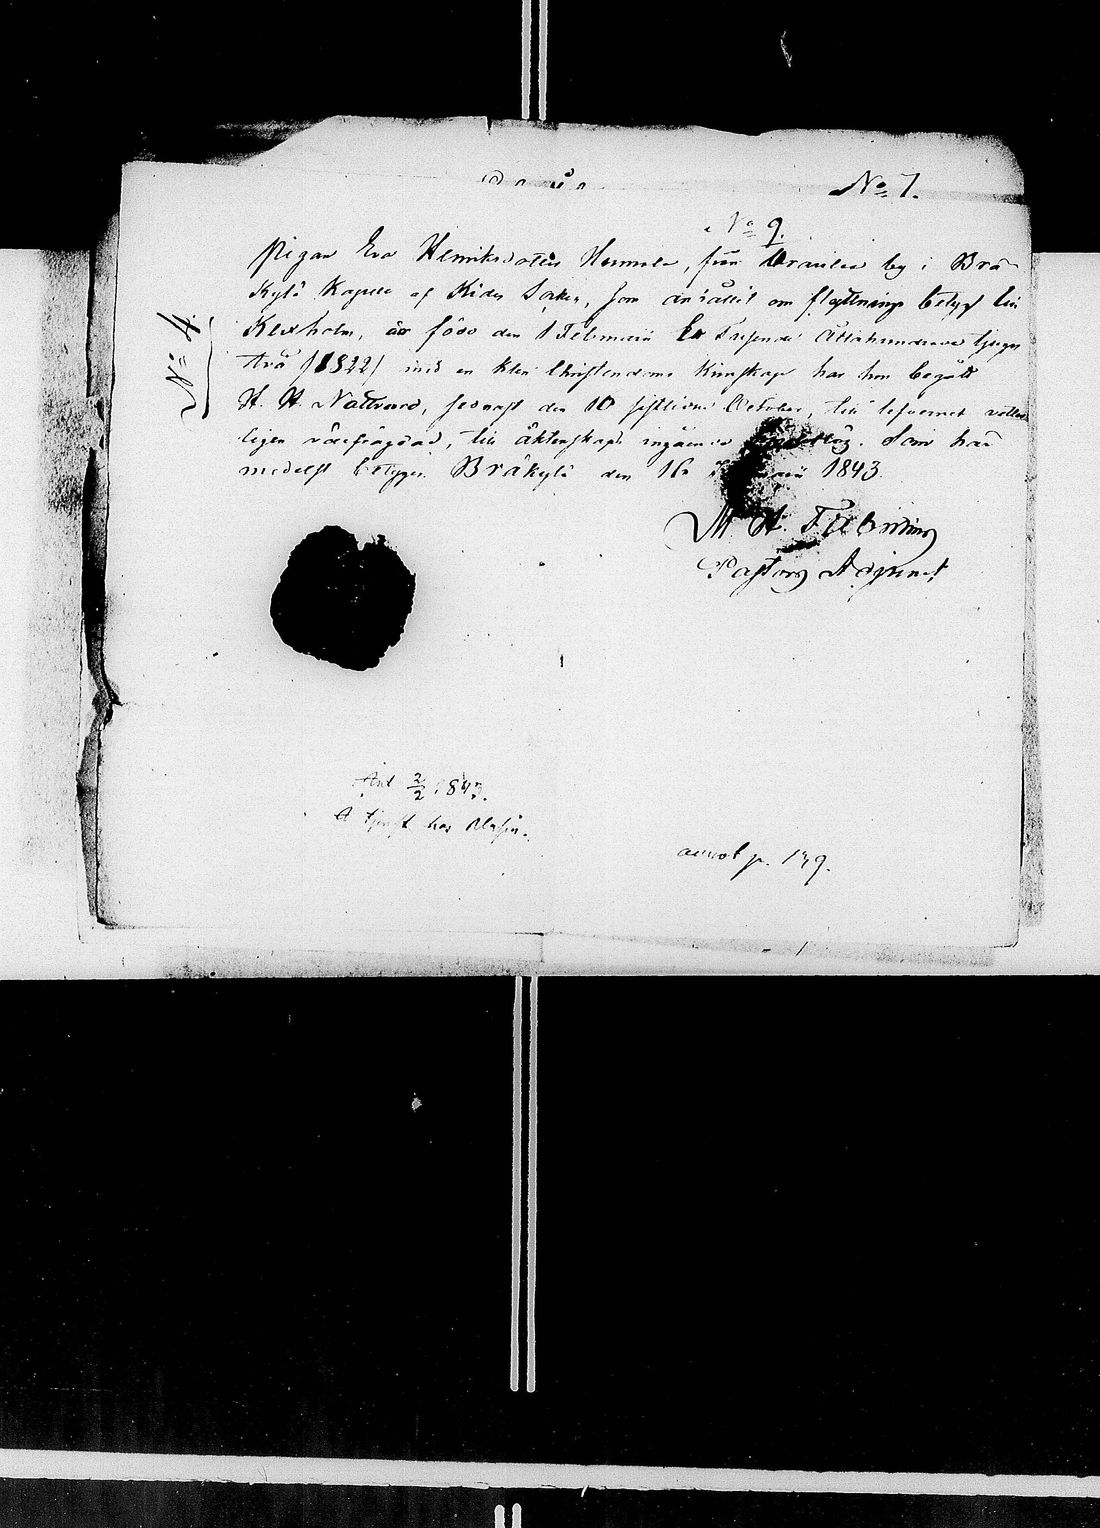 No 7.
No 9.
No 4.
Pigan Eva Henriksdotter Hummela, från by i Brä-
kylä Kapell af Kides Soken, som anhållit om flyttnings betyg till
Kexholm, är född den 1 Februarii Ett Tusende Åttahundrade tjugu
två /1822/ med en klen Christendoms Kunskap har hon begått
H. H. Nattvard, sednast den 10 sistlidne October, till lefvernet
ligen, till äktenskaps ingående. Som här
medelst betygar. Bräkylä den 16 1843.
M. H.
Pastors Adjunct
Ant 2/2 1843.
A tjenst hos
p. 139.